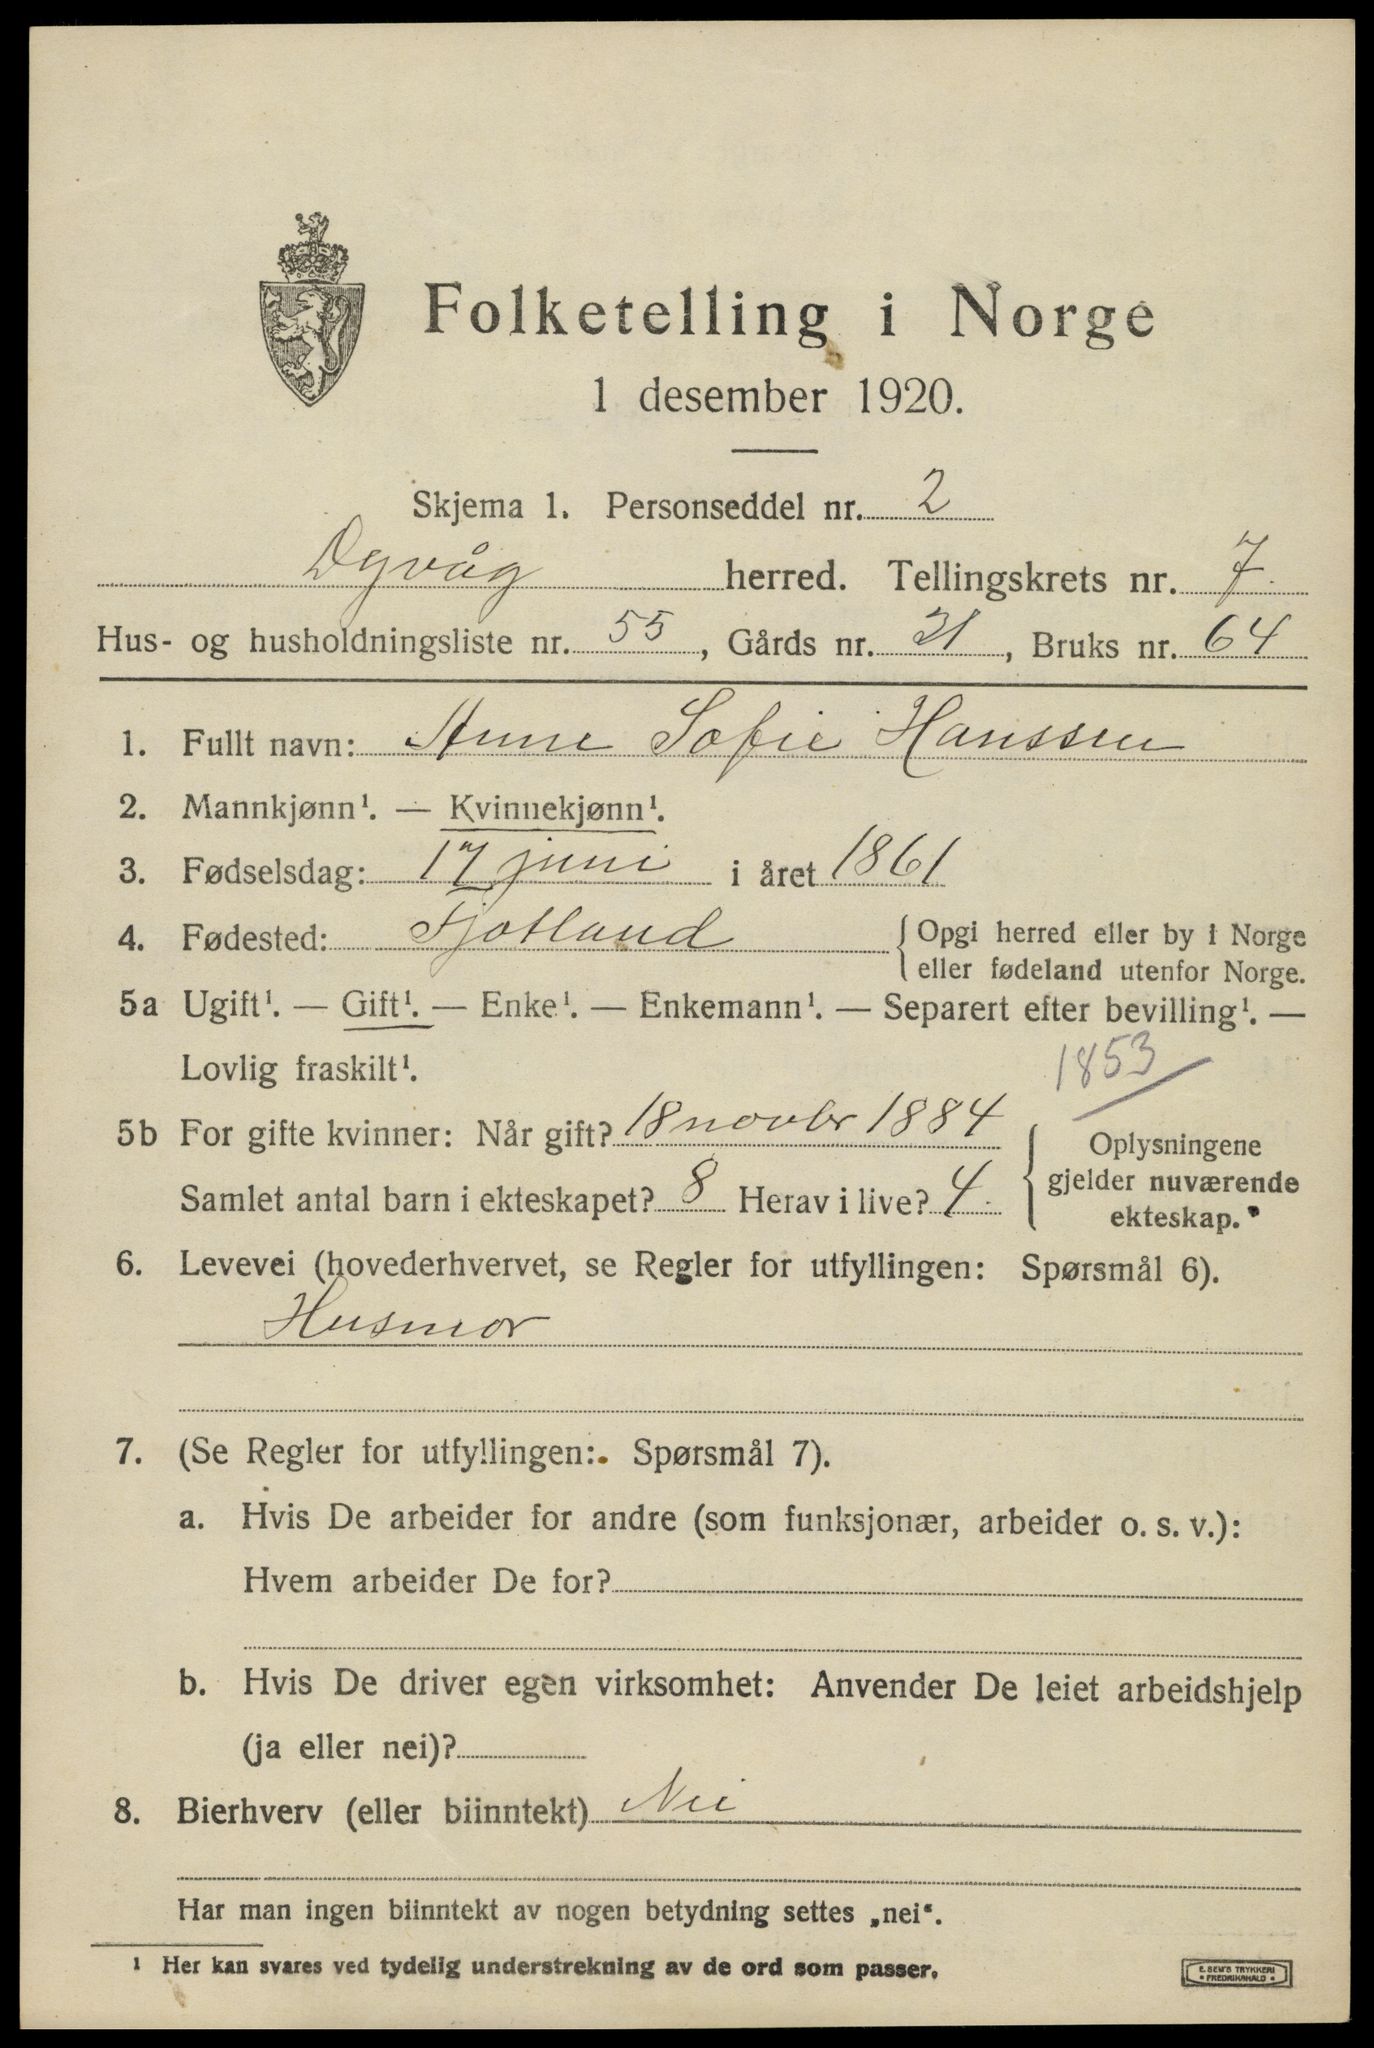 Folketelling i Norge
1 desember 1920.
Skjema 1. Personseddel nr. 2
Dyvåg herred. Tellingskrets nr. 7.
Hus- og husholdningsliste nr. 55, Gårds nr. 21, Bruks nr. 64
1. Fullt navn: Anne Sofie Hanssen
2. Mannkjønn¹. — Kvinnekjønn¹.
3. Fødselsdag: 17 juni i året 1861
4. Fødested: Fjotland { Opgi herred eller by i Norge
eller fødeland utenfor Norge.
5a Ugift¹. — Gift¹. — Enke¹. — Enkemann¹. — Separert efter bevilling¹. —
Lovlig fraskilt¹.
1853
5b For gifte kvinner: Når gift? 18 novbr 1884
Samlet antal barn i ekteskapet? 8 Herav i live? 4.
{ Oplysningene
gjelder nuværende
ekteskap.
6. Levevei (hovederhvervet, se Regler for utfyllingen: Spørsmål 6).
Husmor
7. (Se Regler for utfyllingen: Spørsmål 7).
a. Hvis De arbeider for andre (som funksjonær, arbeider o. s. v.):
Hvem arbeider De for?
b. Hvis De driver egen virksomhet: Anvender De leiet arbeidshjelp
(ja eller nei)?
8. Bierhverv (eller biinntekt) Nei
Har man ingen biinntekt av nogen betydning settes „nei“.
¹ Her kan svares ved tydelig understrekning av de ord som passer.
E. SEM'S TRYKKERI
FREDRIKSHALD